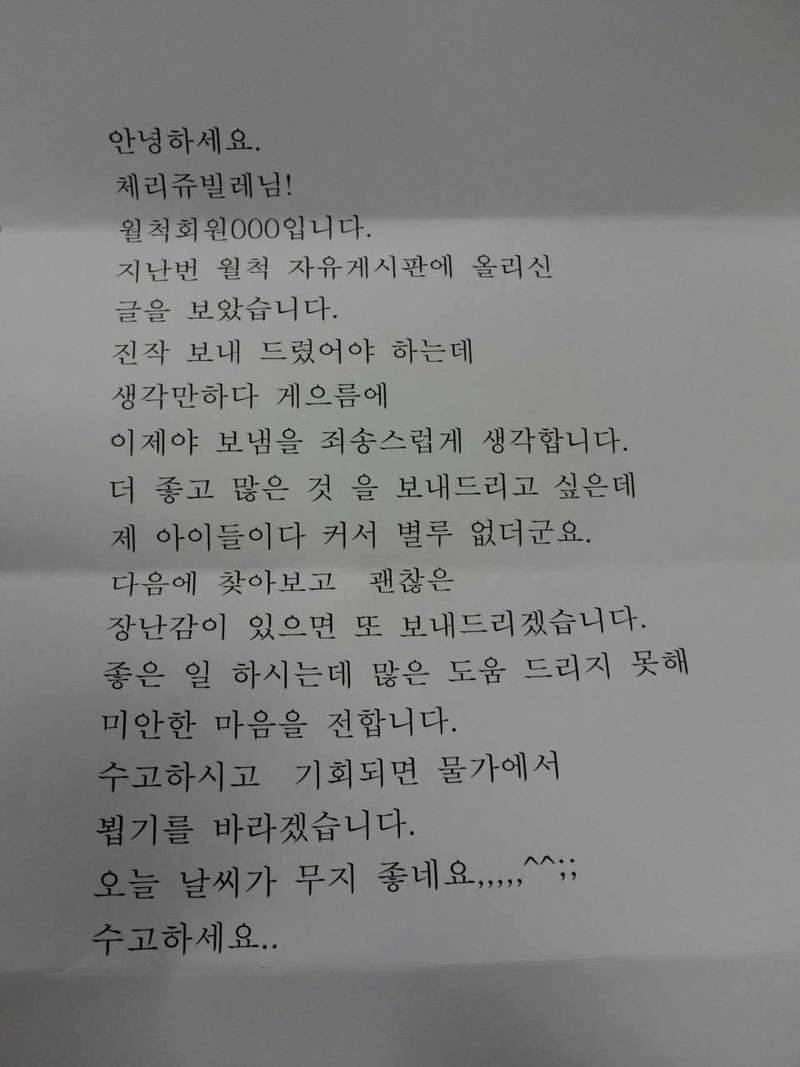 안녕하세요.
체리쥬빌레님!
월척회원000입니다.
지난번 월척 자유게시판에 올리신
글을 보았습니다.
진작 보내 드렸어야 하는데
생각만하다 게으름에
이제야 보냄을 죄송스럽게 생각합니다.
더 좋고 많은 것 을 보내드리고 싶은데
제 아이들이다 커서 별루 없더군요.
다음에 찾아보고 괜찮은
장난감이 있으면 또 보내드리겠습니다.
좋은 일 하시는데 많은 도움 드리지 못해
미안한 마음을 전합니다.
수고하시고 기회되면 물가에서
뵙기를 바라겠습니다.
오늘 날씨가 무지 좋네요,,,,,^^;;
수고하세요..